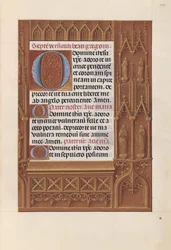 Septe versus beati gregorii.
Domine ihesu
xpe adoro te in
cruce pendente
et coronam spi
neam in capite
portantem. de
precor te ut tua crux liberet me
ab angelo percutiente. Amen.
Pater noster. Aue maria
Domine ihesu xpe adoro te
in cruce vulneratum felle et a
ceto potatum. deprecor te ut tua
vulnera remedium sint anime
mee. Amen. Pater nr. Aue m
Domine ihesu xpe adoro te
in sepulcro positum